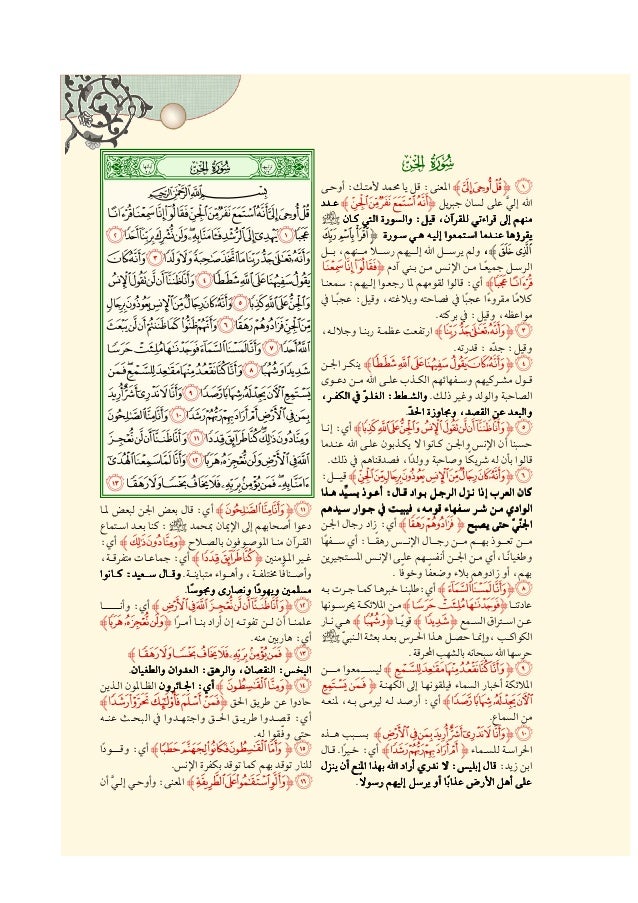 سُورَةُ الجِنِّ
۝١ ﴿قُلْ أُوحِىَ إِلَىَّ﴾ المعنى: قل يا محمد لأمتك: أوحى
الله إليَّ على لسان جبريل ﴿أَنَّهُ ٱسْتَمَعَ نَفَرٌ مِّنَ ٱلْجِنِّ﴾ عدد
منهم إلى قراءتي للقرآن، قيل: والسورة التي كان ﷺ
يقرؤها عندما استمعوا إليه هي سورة ﴿ٱقْرَأْ بِٱسْمِ رَبِّكَ
ٱلَّذِى خَلَقَ﴾، ولم يرسل الله إليهم رسلا منهم، بل
الرسل جميعًا من الإنس من بني آدم ﴿فَقَالُوٓا۟ إِنَّا سَمِعْنَا
قُرْءَانًا عَجَبًا﴾ أي: قالوا لقومهم لما رجعوا إليهم: سمعنا
كلامًا مقروءًا عجبًا في فصاحته وبلاغته، وقيل: عجبًا في
مواعظه، وقيل: في بركته.
۝٣ ﴿وَأَنَّهُۥ تَعَٰلَىٰ جَدُّ رَبِّنَا﴾ ارتفعت عظمة ربنا وجلاله،
وقيل: جدّه: قدرته.
۝٤ ﴿وَأَنَّهُۥ كَانَ يَقُولُ سَفِيهُنَا عَلَى ٱللَّهِ شَطَطًا﴾ ينكر الجن
قول مشركيهم وسفهائهم الكذب على الله من دعوى
الصاحبة والولد وغير ذلك. والشطط: الغلوّ في الكفر،
والبعد عن القصد، ومجاوزة الحدّ.
۝٥ ﴿وَأَنَّا ظَنَنَّآ أَن لَّن تَقُولَ ٱلْإِنسُ وَٱلْجِنُّ عَلَى ٱللَّهِ كَذِبًا﴾ أي: إنا
حسبنا أن الإنس والجن كانوا لا يكذبون على الله عندما
قالوا بأن له شريكا وصاحبة وولدا، فصدقناهم في ذلك.
۝٦ ﴿وَأَنَّهُۥ كَانَ رِجَالٌ مِّنَ ٱلْإِنسِ يَعُوذُونَ بِرِجَالٍ مِّنَ ٱلْجِنِّ﴾ قيل:
كان العرب إذا نزل الرجل بواد قال: أعوذ بسيِّد هذا
الوادي من شر سفهاء قومه، فيبيت في جوار سيدهم
الجنّيّ حتى يصبح ﴿فَزَادُوهُمْ رَهَقًا﴾ أي: زاد رجال الجن
من تعوذ بهم من رجال الإنس رهقا: أي سفهًا
وطغيانًا، أي من الجن أنفسهم على الإنس المستجيرين
بهم، أو زادوهم بلاء وضعفا وخوفا.
۝٨ ﴿وَأَنَّا لَمَسْنَا ٱلسَّمَآءَ﴾ أي: طلبنا خبرها كما جرت به
عادتنا ﴿فَوَجَدْنَٰهَا مُلِئَتْ حَرَسًا﴾ من الملائكة يحرسونها
عن استراق السمع ﴿شَدِيدًا﴾ قويًا ﴿وَشُهُبًا﴾ هي نار
الكواكب، وإنما حصل هذا الحرس بعد بعثة النبيّ ﷺ
حرسها الله سبحانه بالشهب المحرقة.
۝٩ ﴿وَأَنَّا كُنَّا نَقْعُدُ مِنْهَا مَقَٰعِدَ لِلسَّمْعِ﴾ ليسمعوا من
الملائكة أخبار السماء فيلقونها إلى الكهنة ﴿فَمَن يَسْتَمِعِ
ٱلْءَانَ يَجِدْ لَهُۥ شِهَابًا رَّصَدًا﴾ أي: أرصد له ليرمى به، لمنعه
من السماع.
۝١٠ ﴿وَأَنَّا لَا نَدْرِىٓ أَشَرٌّ أُرِيدَ بِمَن فِى ٱلْأَرْضِ﴾ بسبب هذه
الحراسة للسماء ﴿أَمْ أَرَادَ بِهِمْ رَبُّهُمْ رَشَدًا﴾ أي: خيرًا. قال
ابن زيد: قال إبليس: لا ندري أراد الله بهذا المنع أن ينزل
على أهل الأرض عذابًا أو يرسل إليهم رسولا.
سُورَةُ الجِنِّ
بِسْمِ ٱللَّهِ ٱلرَّحْمَٰنِ ٱلرَّحِيمِ
قُلْ أُوحِىَ إِلَىَّ أَنَّهُ ٱسْتَمَعَ نَفَرٌ مِّنَ ٱلْجِنِّ فَقَالُوٓا۟ إِنَّا سَمِعْنَا قُرْءَانًا
عَجَبًا ۝١ يَهْدِىٓ إِلَى ٱلرُّشْدِ فَـَٔامَنَّا بِهِۦ وَلَن نُّشْرِكَ بِرَبِّنَآ أَحَدًا ۝٢
وَأَنَّهُۥ تَعَٰلَىٰ جَدُّ رَبِّنَا مَا ٱتَّخَذَ صَٰحِبَةً وَلَا وَلَدًا ۝٣ وَأَنَّهُۥ كَانَ
يَقُولُ سَفِيهُنَا عَلَى ٱللَّهِ شَطَطًا ۝٤ وَأَنَّا ظَنَنَّآ أَن لَّن تَقُولَ ٱلْإِنسُ
وَٱلْجِنُّ عَلَى ٱللَّهِ كَذِبًا ۝٥ وَأَنَّهُۥ كَانَ رِجَالٌ مِّنَ ٱلْإِنسِ يَعُوذُونَ بِرِجَالٍ
مِّنَ ٱلْجِنِّ فَزَادُوهُمْ رَهَقًا ۝٦ وَأَنَّهُمْ ظَنُّوا۟ كَمَا ظَنَنتُمْ أَن لَّن يَبْعَثَ
ٱللَّهُ أَحَدًا ۝٧ وَأَنَّا لَمَسْنَا ٱلسَّمَآءَ فَوَجَدْنَٰهَا مُلِئَتْ حَرَسًا
شَدِيدًا وَشُهُبًا ۝٨ وَأَنَّا كُنَّا نَقْعُدُ مِنْهَا مَقَٰعِدَ لِلسَّمْعِ فَمَن
يَسْتَمِعِ ٱلْءَانَ يَجِدْ لَهُۥ شِهَابًا رَّصَدًا ۝٩ وَأَنَّا لَا نَدْرِىٓ أَشَرٌّ أُرِيدَ
بِمَن فِى ٱلْأَرْضِ أَمْ أَرَادَ بِهِمْ رَبُّهُمْ رَشَدًا ۝١٠ وَأَنَّا مِنَّا ٱلصَّٰلِحُونَ
وَمِنَّا دُونَ ذَٰلِكَ كُنَّا طَرَآئِقَ قِدَدًا ۝١١ وَأَنَّا ظَنَنَّآ أَن لَّن نُّعْجِزَ
ٱللَّهَ فِى ٱلْأَرْضِ وَلَن نُّعْجِزَهُۥ هَرَبًا ۝١٢ وَأَنَّا لَمَّا سَمِعْنَا ٱلْهُدَىٰٓ
ءَامَنَّا بِهِۦ فَمَن يُؤْمِنۢ بِرَبِّهِۦ فَلَا يَخَافُ بَخْسًا وَلَا رَهَقًا ۝١٣
۝١١ ﴿وَأَنَّا مِنَّا ٱلصَّٰلِحُونَ﴾ أي: قال بعض الجن لبعض لما
دعوا أصحابهم إلى الإيمان بمحمد ﷺ: كنا بعد استماع
القرآن منا الموصوفون بالصلاح ﴿وَمِنَّا دُونَ ذَٰلِكَ﴾ أي:
غير المؤمنين ﴿كُنَّا طَرَآئِقَ قِدَدًا﴾ أي: جماعات متفرقة،
وأصنافا مختلفة، وأهواء متباينة. وقال سعيد: كانوا
مسلمين ويهودًا ونصارى ومجوسًا.
۝١٢ ﴿وَأَنَّا ظَنَنَّآ أَن لَّن نُّعْجِزَ ٱللَّهَ فِى ٱلْأَرْضِ﴾ أي: وأنا
علمنا أن لن نفوته إن أراد بنا أمرًا ﴿وَلَن نُّعْجِزَهُۥ هَرَبًا﴾
أي: هاربين منه.
۝١٣ ﴿فَمَن يُؤْمِنۢ بِرَبِّهِۦ فَلَا يَخَافُ بَخْسًا وَلَا رَهَقًا﴾
البخس: النقصان، والرهق: العدوان والطغيان.
۝١٤ ﴿وَمِنَّا ٱلْقَٰسِطُونَ﴾ أي: الجائرون الظالمون الذين
حادوا عن طريق الحق ﴿فَمَنْ أَسْلَمَ فَأُو۟لَٰٓئِكَ تَحَرَّوْا۟ رَشَدًا﴾
أي: قصدوا طريق الحق واجتهدوا في البحث عنه
حتى وفّقوا له.
۝١٥ ﴿وَأَمَّا ٱلْقَٰسِطُونَ فَكَانُوا۟ لِجَهَنَّمَ حَطَبًا﴾ أي: وقودًا
للنار توقد بهم كما توقد بكفرة الإنس.
۝١٦ ﴿وَأَلَّوِ ٱسْتَقَٰمُوا۟ عَلَى ٱلطَّرِيقَةِ﴾ المعنى: وأوحي إليَّ أن